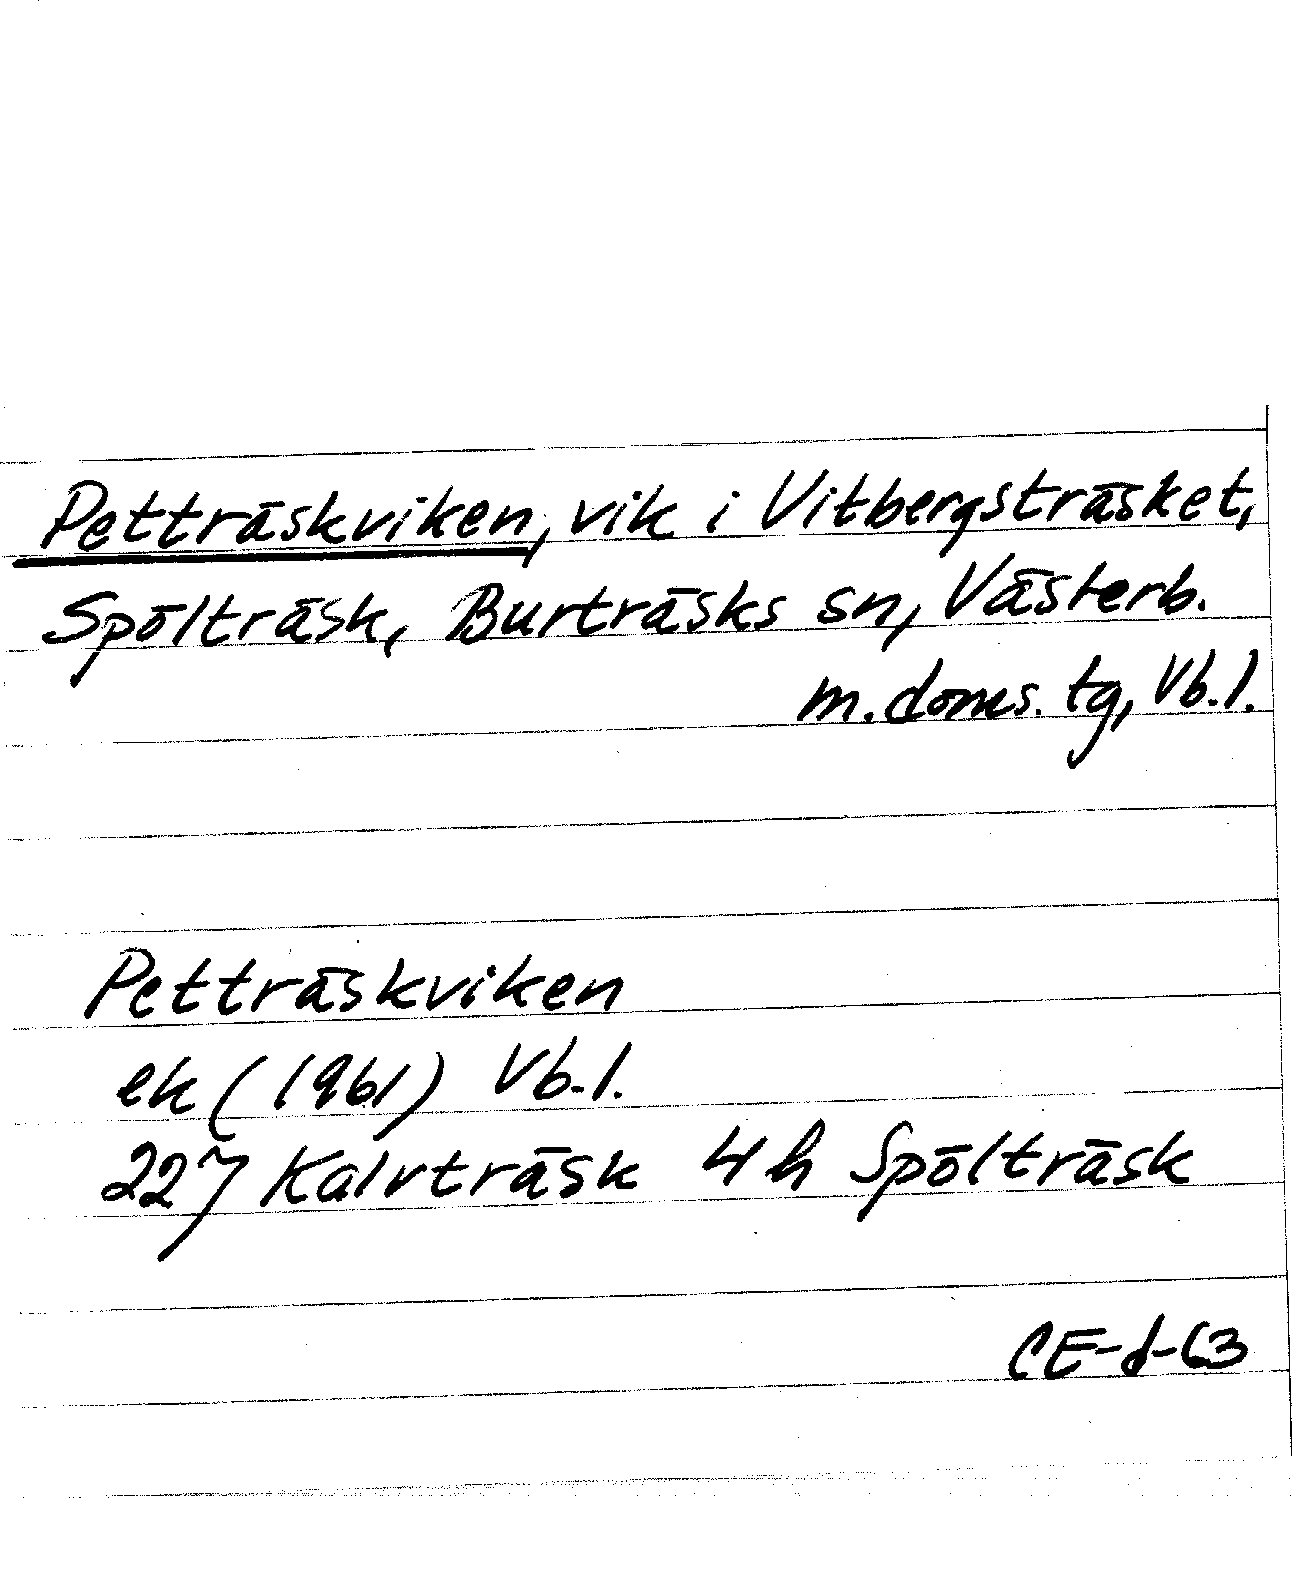 Petträskviken, vik i Vitbergsträsket,
Spölträsk, Burträsks sn, Västerb.
m. doms. tg, Vb. l.
Petträskviken
ek (1961) Vb. l.
227 Kalvträsk 4 h Spölträsk
CE-d-63